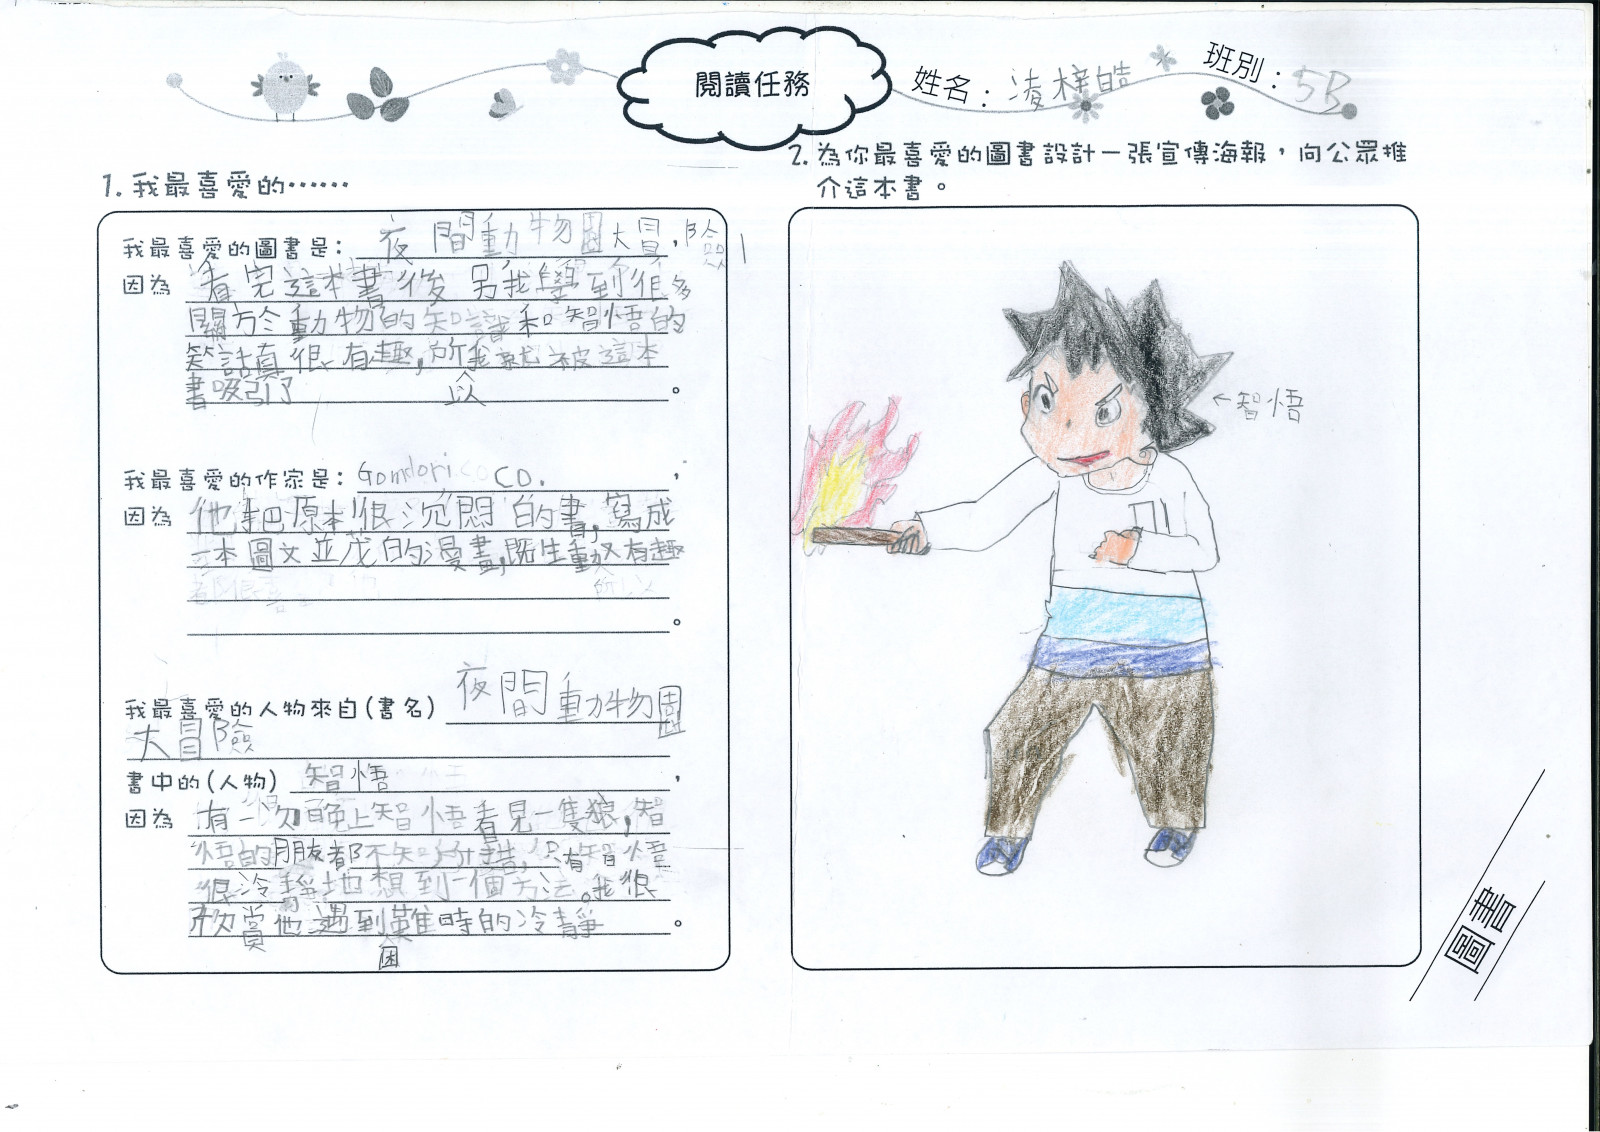 閱讀任務
姓名：凌梓皓
班別：5B
1. 我最喜愛的……
我最喜愛的圖書是：夜間動物園大冒險，
因為 看完這本書後另我學到很多
關於動物的知識和智悟的
笑話真很有趣，所以我就被這本
書吸引了。
我最喜愛的作家是：Gomdori co CO.，
因為 他把原本很沉悶的書，寫成
一本圖文並茂的漫畫，既生動又有趣
。
我最喜愛的人物來自(書名) 夜間動物園
大冒險
書中的(人物) 智悟，
因為 有一次晚上智悟看見一隻狼，智
悟的朋友都不知所措，只有智悟
很冷靜地想到一個方法。我很
欣賞他遇到困難時的冷靜。
2. 為你最喜愛的圖書設計一張宣傳海報，向公眾推
介這本書。
←智悟
圖書